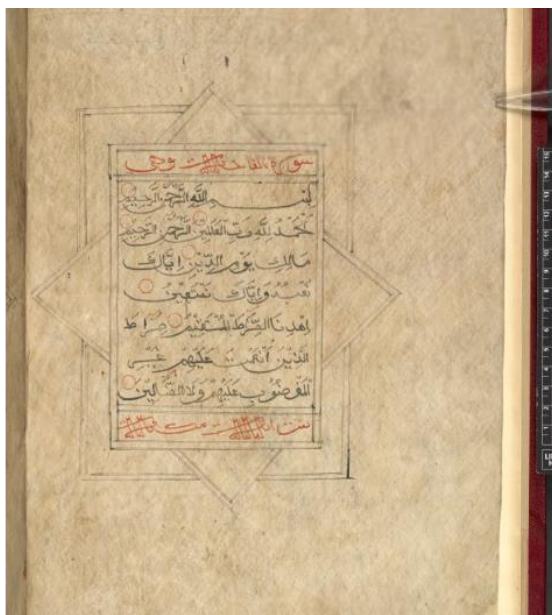 سورة الفاتحة
بسم الله الرحمن الرحيم
الحمد لله رب العلمين الرحمن الرحيم
مالك يوم الدين اياك
نعبد واياك نستعين
اهدنا الصراط المستقيم صراط
الذين انعمت عليهم غير
المغضوب عليهم ولا الضالين